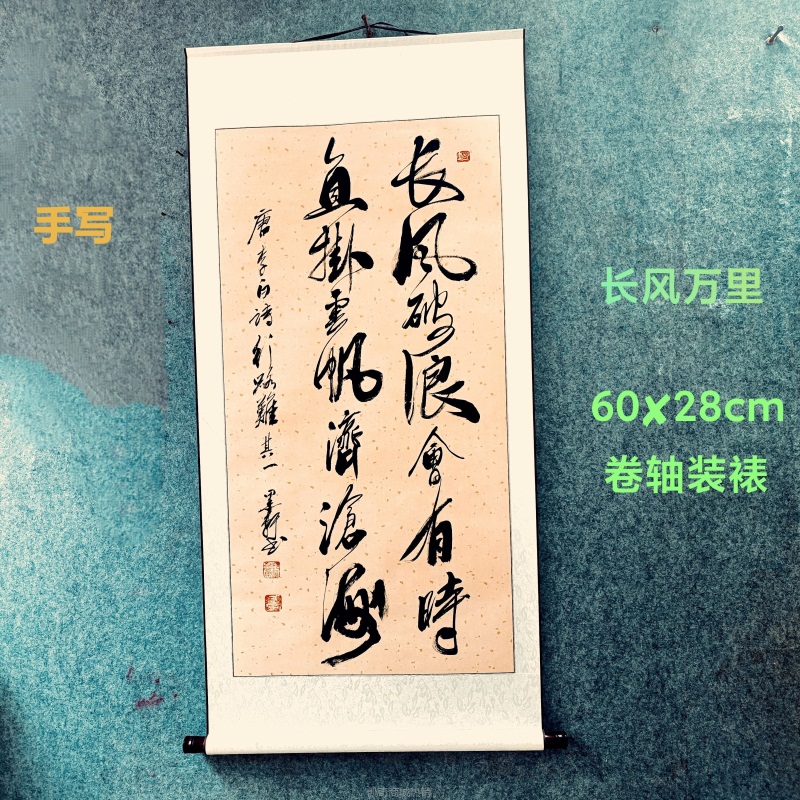 長風破浪會有時
直掛雲帆濟滄海
唐李白詩行路難其一 墨軒书
手写
长风万里
60x28cm
卷轴装裱